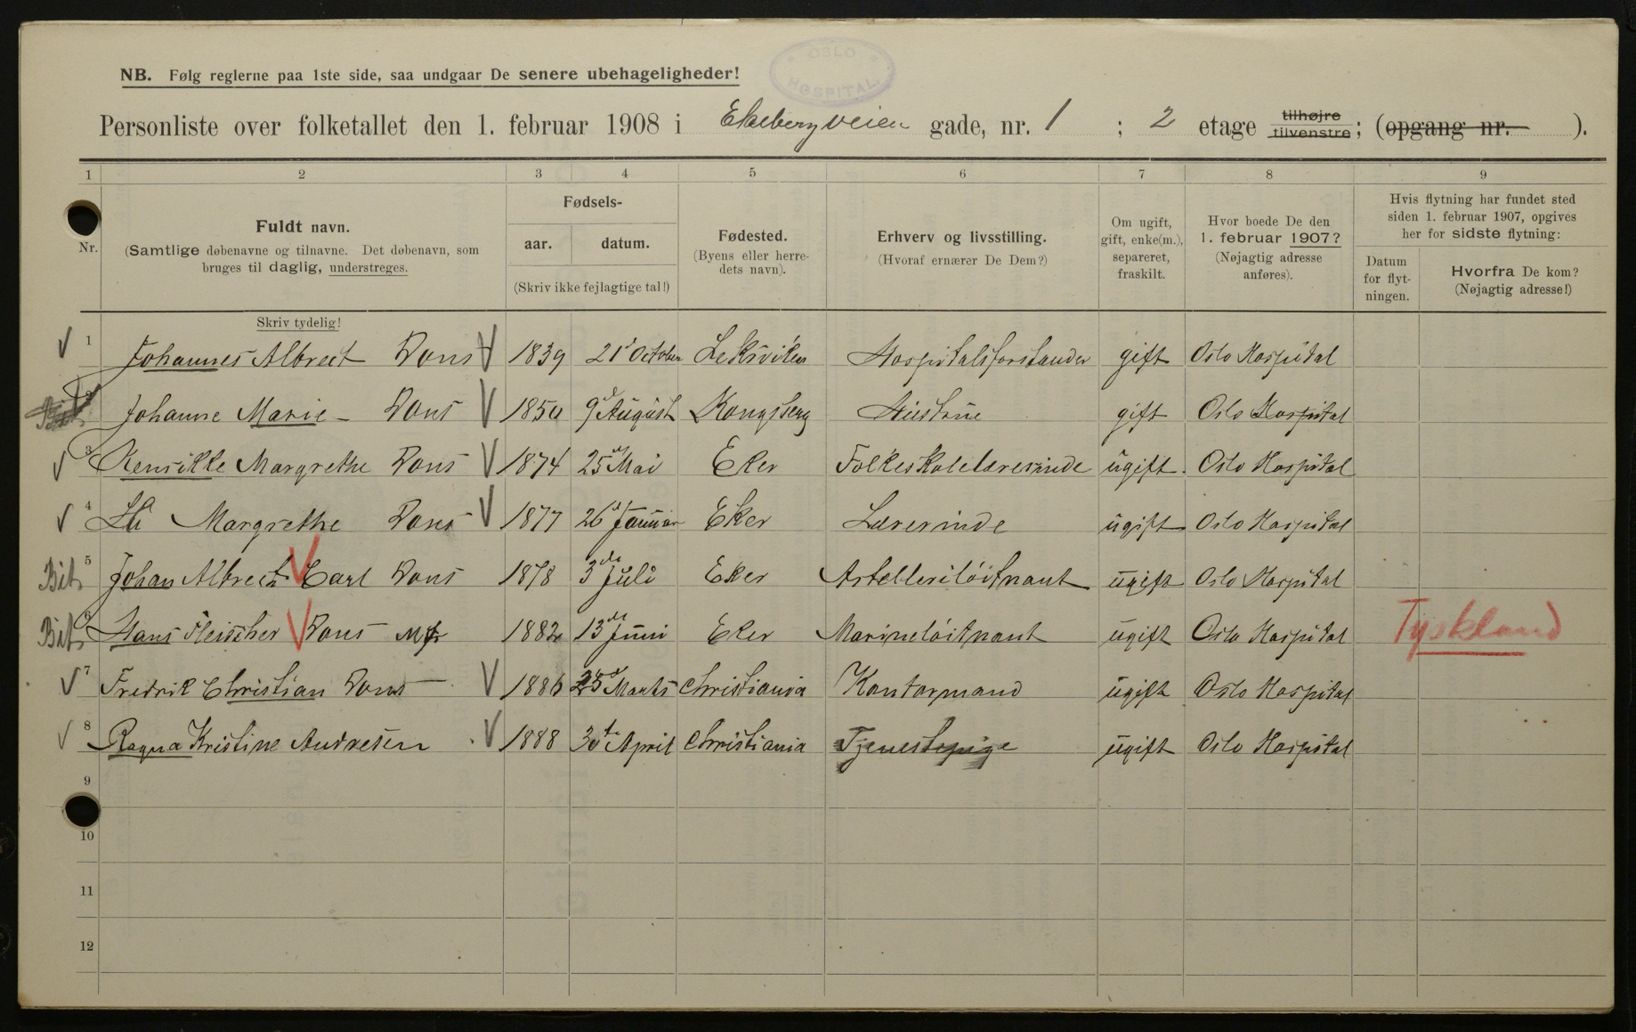 OSLO HOSPITAL.
NB. Følg reglerne paa 1ste side, saa undgaar De senere ubehageligheder!
Personliste over folketallet den 1. februar 1908 i Ekebergveien gade, nr. 1 ; 2 etage tilhøjre tilvenstre; (opgang nr. ).
1 2 3 4 5 6 7 8 9
Nr.
Fuldt navn.
(Samtlige døbenavne og tilnavne. Det døbenavn, som
bruges til daglig, understreges.
Skriv tydelig!
Fødsels-
aar. datum.
(Skriv ikke fejlagtige tal!)
Fødested.
(Byens eller herre-
dets navn).
Erhverv og livsstilling.
(Hvoraf ernærer De Dem?)
Om ugift,
gift, enke(m.),
separeret,
fraskilt.
Hvor boede De den
1. februar 1907?
(Nøjagtig adresse
anføres).
Hvis flytning har fundet sted
siden 1. februar 1907, opgives
her for sidste flytning:
Datum
for flyt-
ningen.
Hvorfra De kom?
(Nøjagtig adresse!)
1 Johannes Albrect Dons 1839 21' October Leksviken Hospitalsforstander gift Oslo Hospital
2 Johanne Marie Dons 1850 9d August Kongsberg Hustrue gift Oslo Hospital
3 Margrethe Dons 1874 25de Mai Eker Folkeskolelærerinde ugift. Oslo Hospital
4 Margrethe Dons 1877 26d Januar Eker Lærerinde ugift Oslo Hospital
Bit. 5 Johan Albrect Carl Dons 1878 3de Juli Eker Artelleriløitnant ugift Oslo Hospital
Bit. 6 Hans Fleischer Dons 1882 13de Juni Eker Marineløitnant ugift Oslo Hospital Tyskland
7 Fredrik Christian Dons 1886 25d Marts Christiania Kontormand ugift Oslo Hospital
8 Ragna Kristine Andresen 1888 30te April Christiania Tjenestepige ugift Oslo Hospital
9
10
11
12